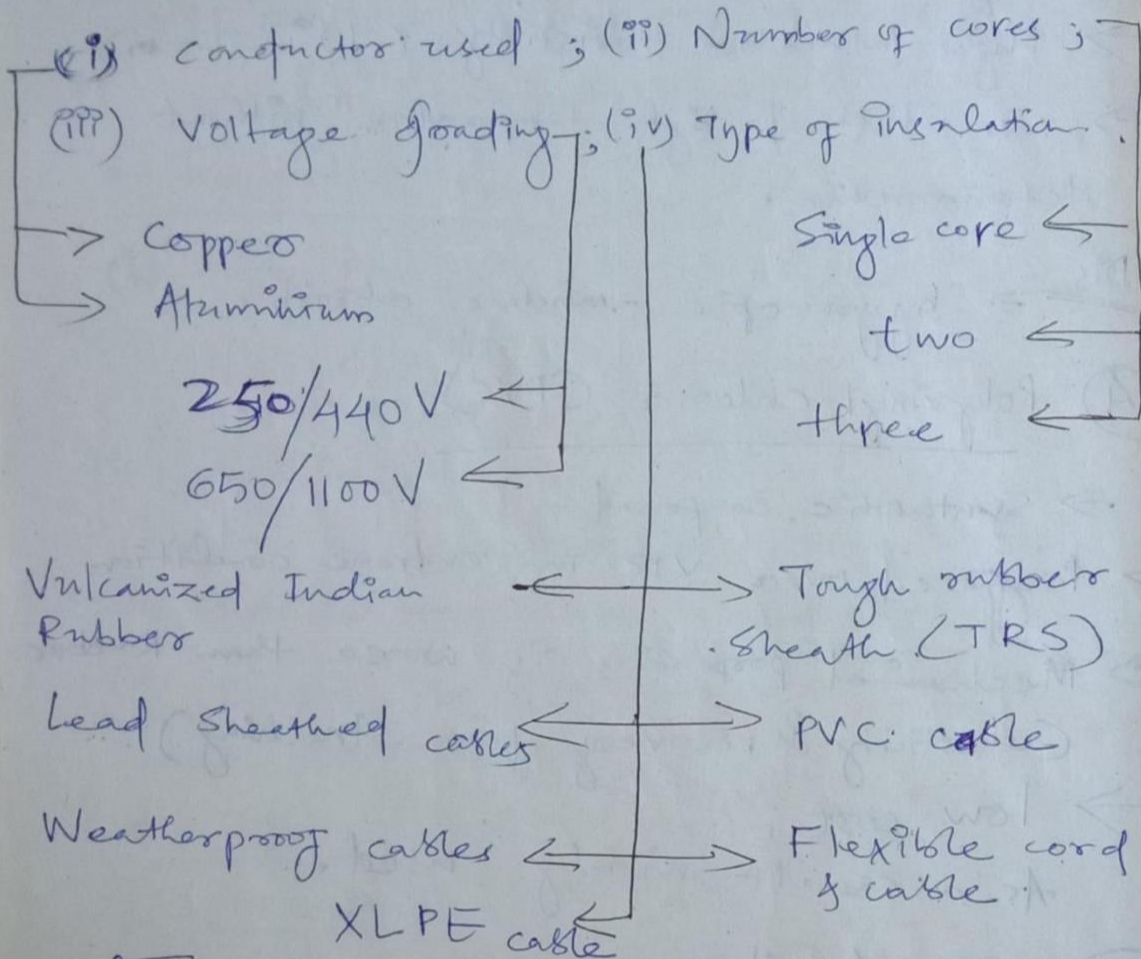 (i) Conductor used ; (ii) Number of cores ;
(iii) Voltage grading ; (iv) Type of insulation.
Copper
Single core
Aluminium
two
250/440 V
three
650/1100 V
Vulcanized Indian
Rubber
Tough rubber
sheath (TRS)
Lead Sheathed cables
PVC cable
Weatherproof cables
Flexible cord
& cable.
XLPE cable